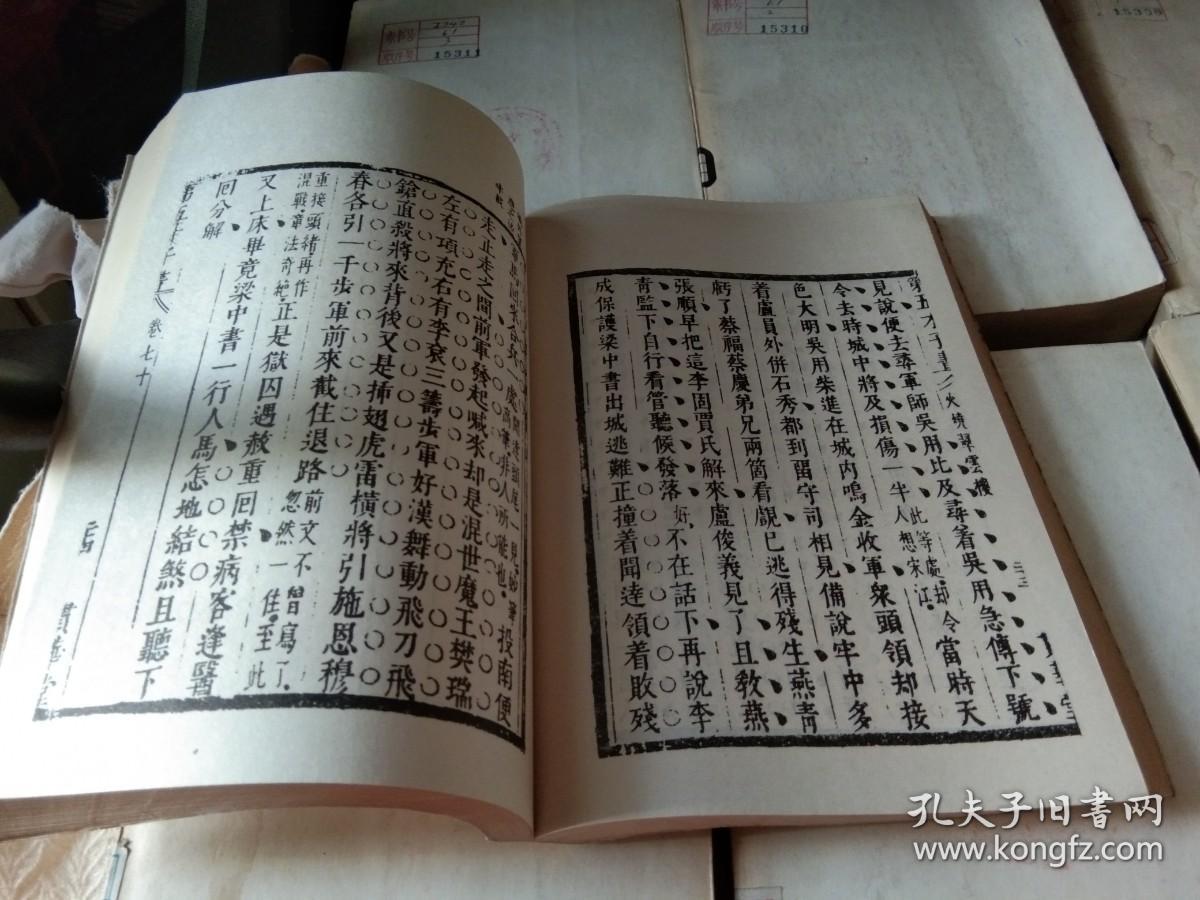 見說便去尋軍師吳用比及尋着吳用急傳下號
令去時城中將及損傷一半人此等處却令想宋江當時天
色大明吳用柴進在城內鳴金收軍衆頭領却接
着盧員外併石秀都到留守司相見備說牢中多
虧了蔡福蔡慶弟兄兩箇看覷已逃得殘生燕青
張順早把這李固賈氏解來盧俊義見了且敎燕
青監下自行看管聽候發落好不在話下再說李
成保護梁中書出城逃難正撞着聞達領着敗殘
第五才子書 火燒翠雲樓
投南便
走正走之間前軍發起喊來却是混世魔王樊瑞
左有項充右有李袞三籌步軍好漢舞動飛刀飛
鎗直殺將來背後又是揷翅虎雷橫將引施恩穆
春各引一千步軍前來截住退路前文不曾寫了忽然一住至此
重接頭緒再作混戰章法奇絕正是獄囚遇赦重回禁病客逢醫
又上床畢竟梁中書一行人馬怎地結煞且聽下
回分解
卷七十
15311
15310
15308
孔夫子旧書网
www.kongfz.com